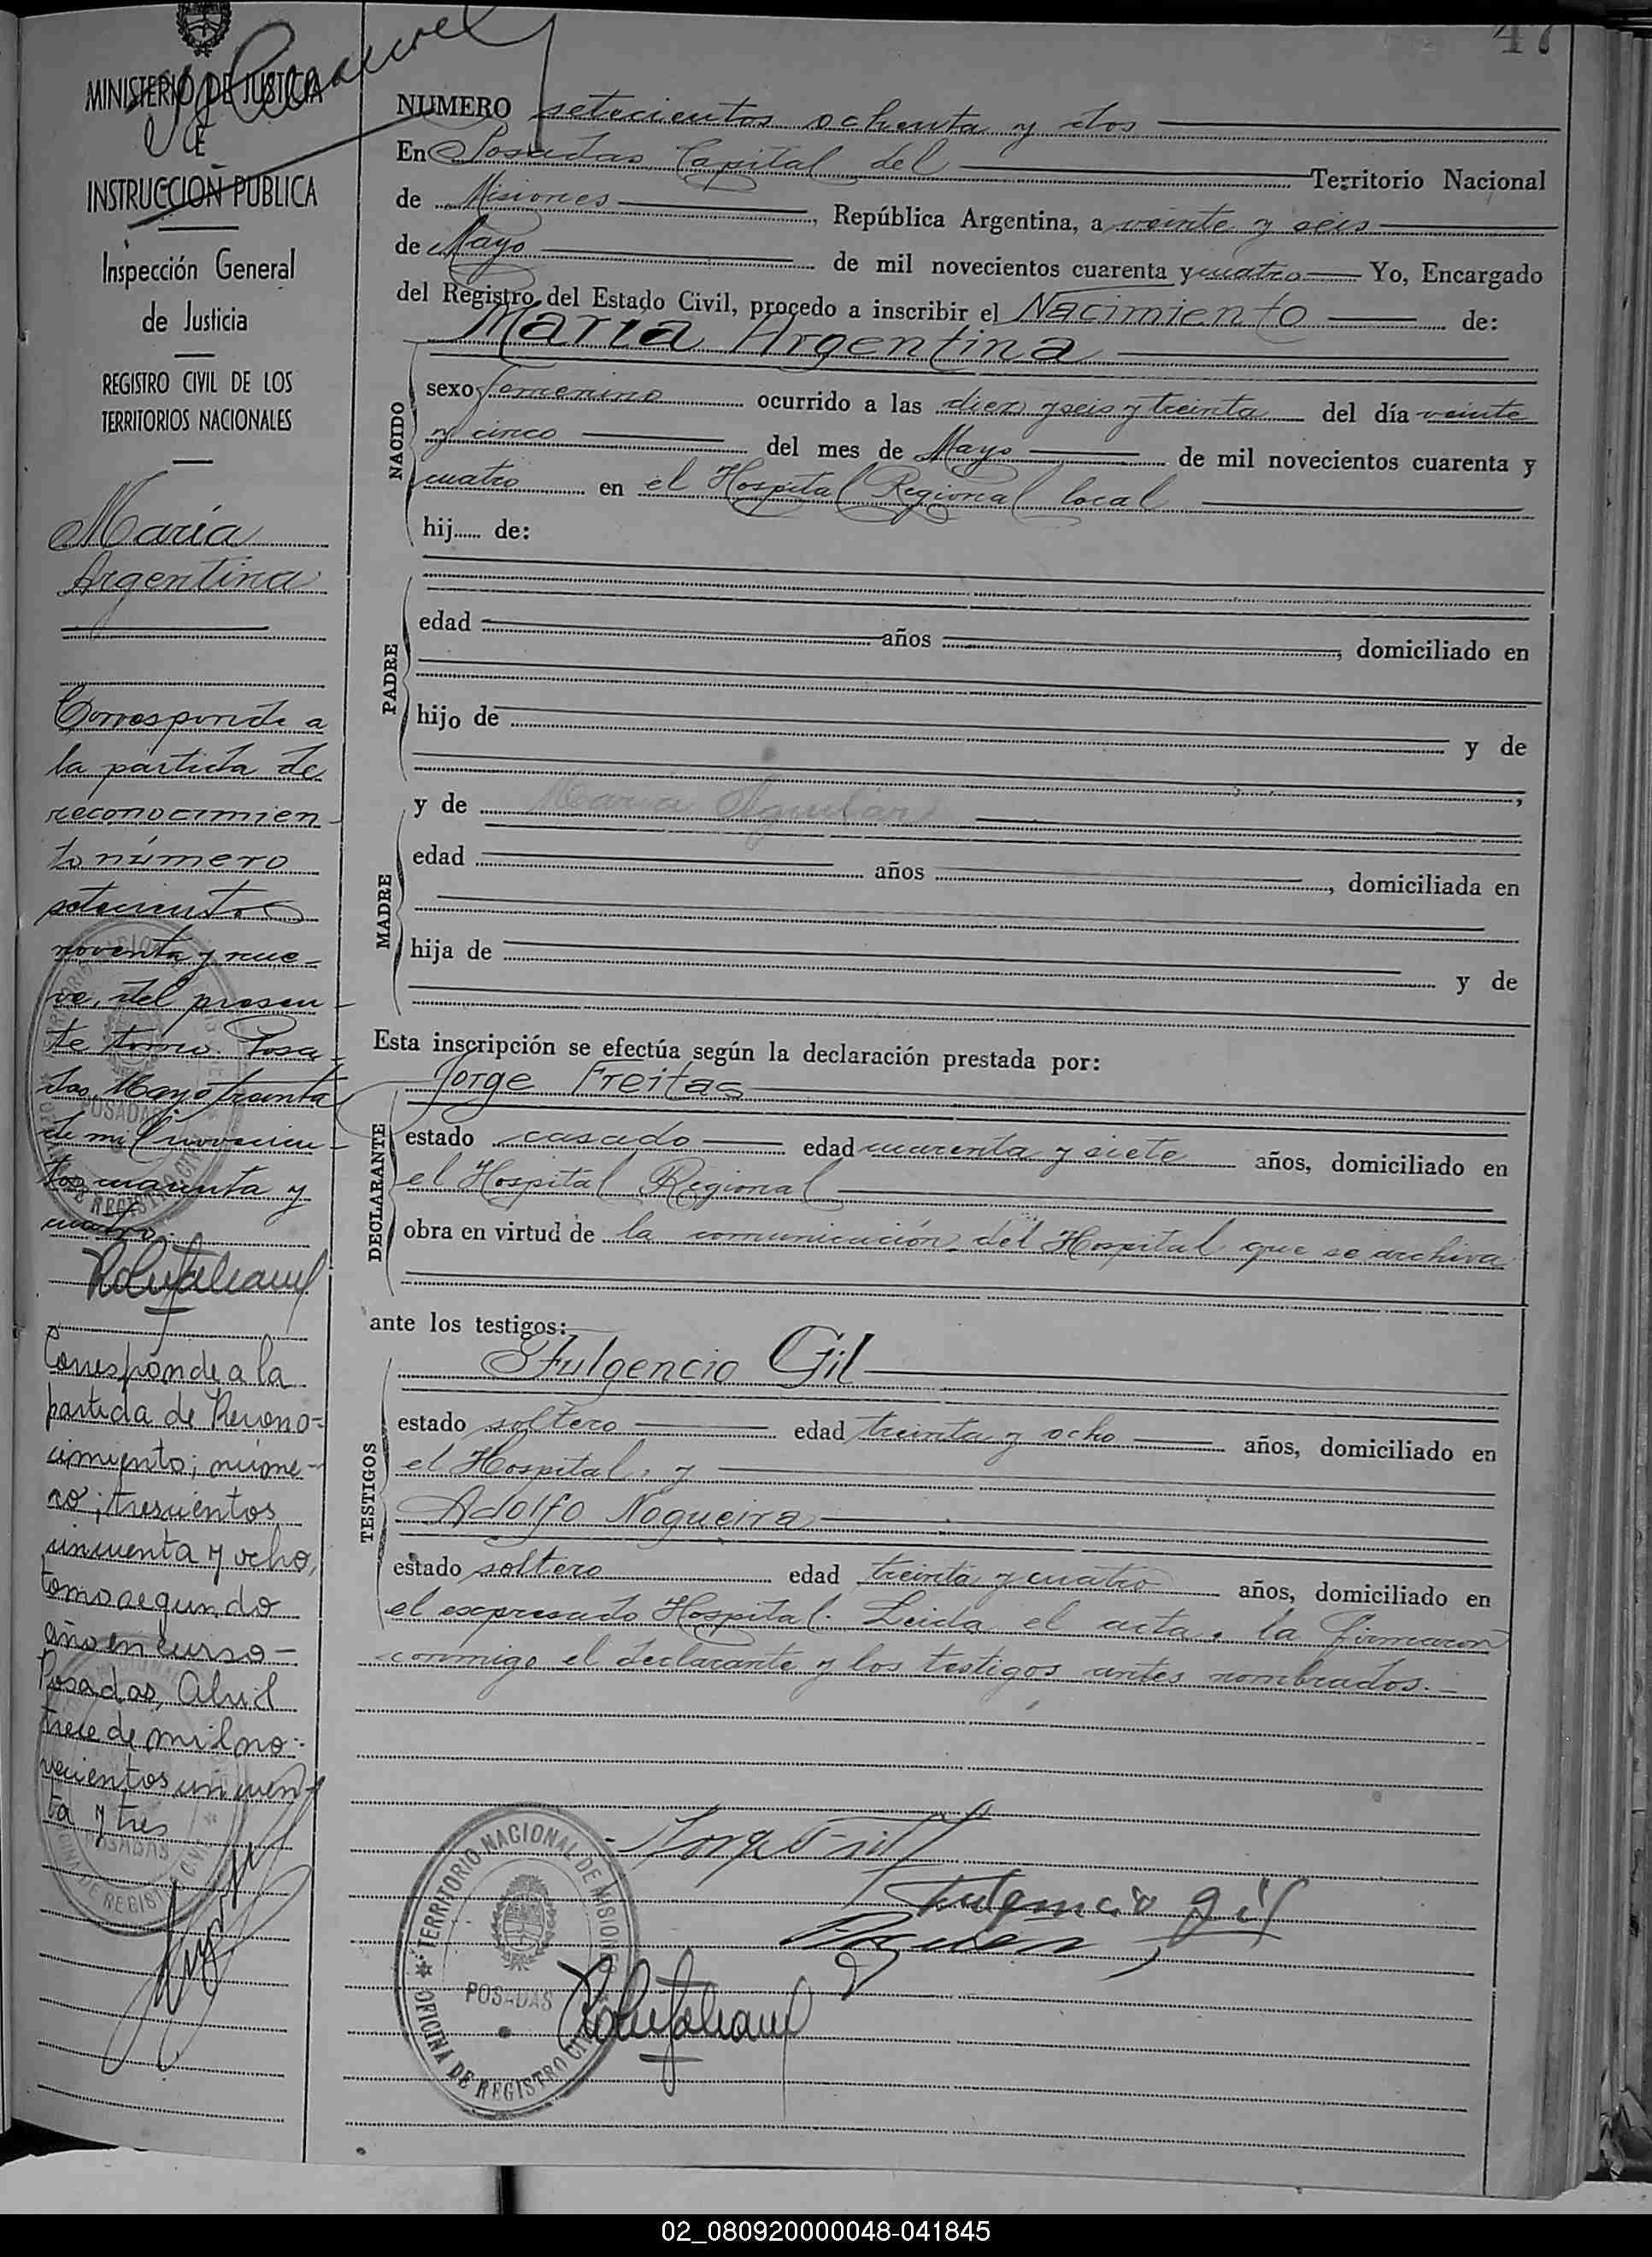 47
MINISTERIO DE JUSTICIA
E
INSTRUCCION PUBLICA
Inspección General
de Justicia
REGISTRO CIVIL DE LOS
TERRITORIOS NACIONALES
María
Argentina
Corresponde a
la partida de
reconocimien-
to número
setecientos
noventa y nue-
ve, del presen-
te tomo. Posa-
das, Mayo treinta
de mil novecien-
tos cuarenta y
cuatro.
Corresponde a la
partida de Recono-
cimiento; núme-
ro; trescientos
cincuenta y ocho,
tomo segundo
año en curso -
Posadas, Abril
trece de mil no-
vecientos cincuen-
ta y tres
NUMERO setecientos ochenta y dos
En Posadas Capital del Territorio Nacional
de Misiones, República Argentina, a veinte y seis
de Mayo de mil novecientos cuarenta y cuatro Yo, Encargado
del Registro del Estado Civil, procedo a inscribir el Nacimiento de:
María Argentina
NACIDO
sexo femenino ocurrido a las diez y seis y treinta del día veinte
y cinco del mes de Mayo de mil novecientos cuarenta y
cuatro en el Hospital Regional local
hij...... de:
PADRE
edad años, domiciliado en
hijo de y de
MADRE
y de María Aguilar
edad años, domiciliada en
hija de y de
Esta inscripción se efectúa según la declaración prestada por:
Jorge Freitas
DECLARANTE
estado casado edad cuarenta y siete años, domiciliado en
el Hospital Regional
obra en virtud de la comunicación del Hospital que se archiva
ante los testigos:
Fulgencio Gil
TESTIGOS
estado soltero edad treinta y ocho años, domiciliado en
el Hospital, y
Adolfo Nogueira
estado soltero edad treinta y cuatro años, domiciliado en
el expresado Hospital. Leida el acta, la firmaron
conmigo el declarante y los testigos antes nombrados.-
Fulgencio Gil
TERRITORIO NACIONAL DE MISIONES
POSADAS
OFICINA DE REGISTRO CIVIL
02_080920000048-041845